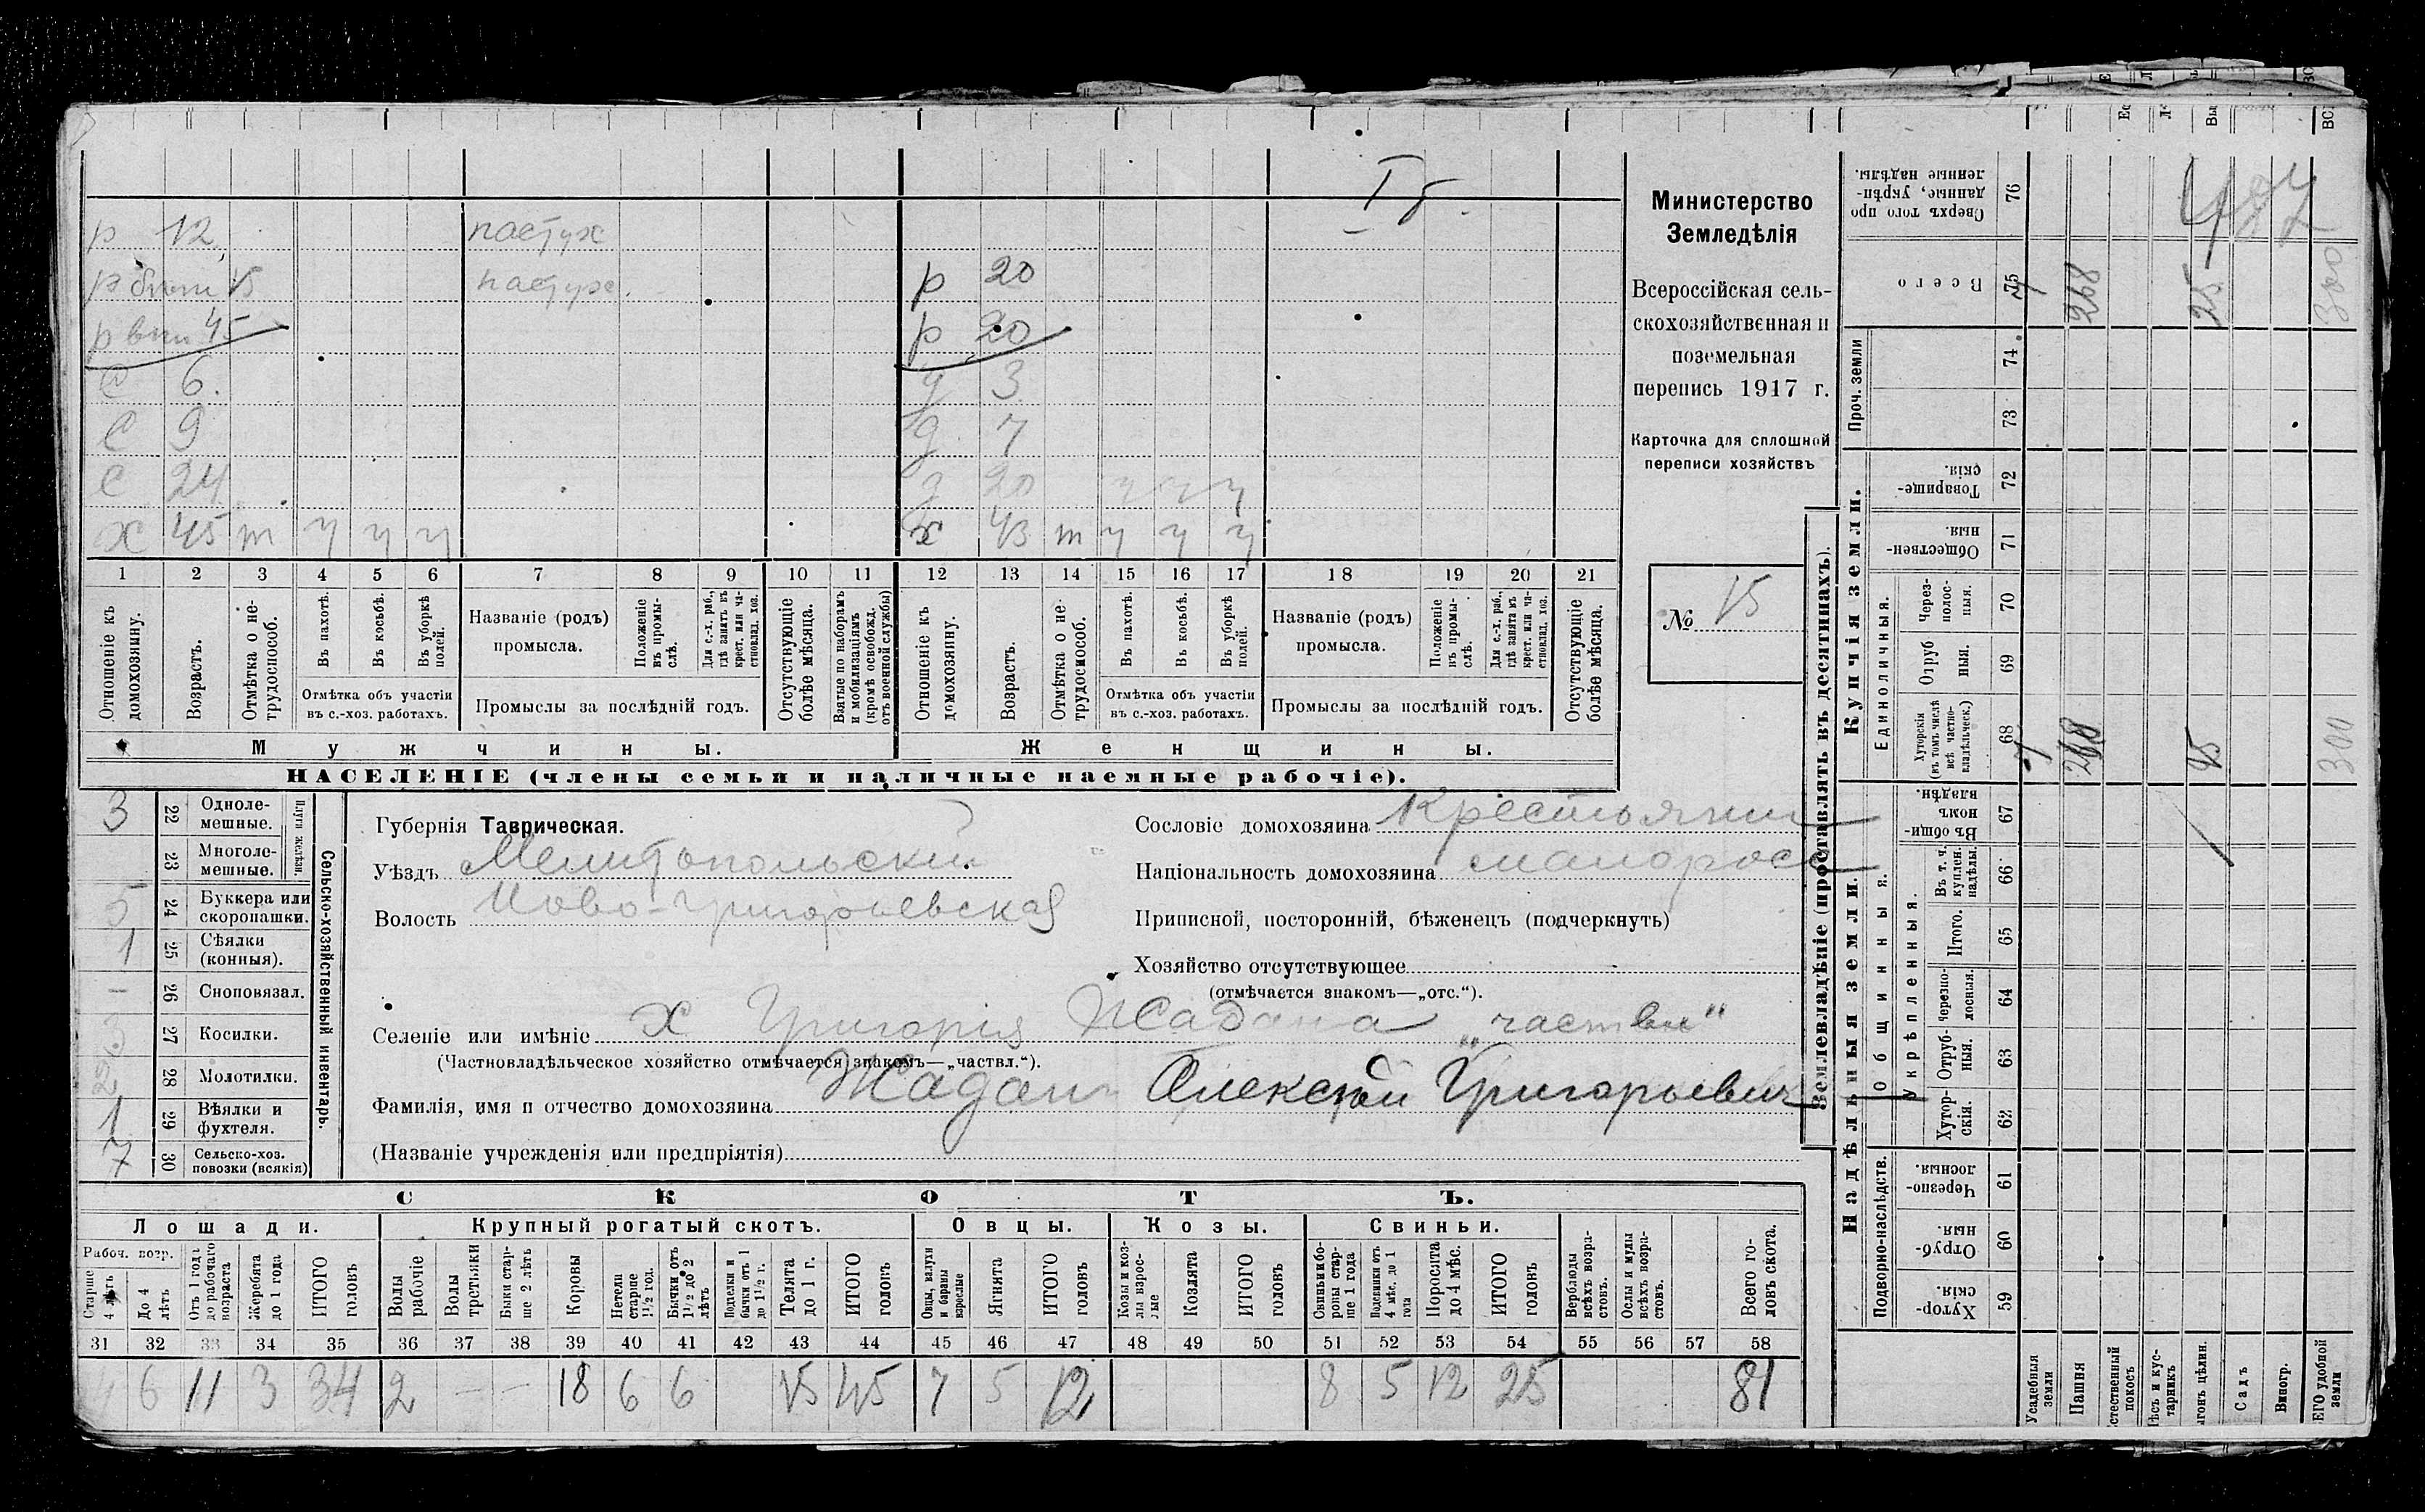 I б.
р 12 пастух
р 15 пастух. р 20
р 45 р 20
С 6. д 3
С 9 д 7
С 24 д 20 у у у
х 45 т у у у х 43 т у у у
1 2 3 4 5 6 7 8 9 10 11 12 13 14 15 16 17 18 19 20 21
Отношеніе къ домохозяину.
Возрастъ.
Отмѣтка о нетрудоспособ.
Въ пахотѣ.
Въ косьбѣ.
Въ уборкѣ полей.
Отмѣтка объ участіи въ с.-хоз. работахъ.
Названіе (родъ) промысла.
Положеніе въ промыслѣ.
Для с.-х. раб., гдѣ занятъ въ крест. или частновлад. хоз.
Промыслы за послѣдній годъ.
Отсутствующіе болѣе мѣсяца.
Взятые по наборамъ и мобилизаціямъ (кромѣ освобожд. отъ военной службы)
Отношеніе къ домохозяину.
Возрастъ.
Отмѣтка о нетрудоспособ.
Въ пахотѣ.
Въ косьбѣ.
Въ уборкѣ полей.
Отмѣтка объ участіи въ с.-хоз. работахъ.
Названіе (родъ) промысла.
Положеніе въ промыслѣ.
Для с.-х. раб., гдѣ занята въ крест. или частновлад. хоз.
Промыслы за послѣдній годъ.
Отсутствующіе болѣе мѣсяца.
Мужчины. Женщины.
НАСЕЛЕНІЕ (члены семьи и наличные наемные рабочіе).
Министерство
Земледѣлія
Всероссійская сель-
скохозяйственная и
поземельная
перепись 1917 г.
Карточка для сплошной
переписи хозяйствъ
№ 15
Сельско-хозяйственный инвентарь.
Плуги желѣзн.
3 22 Одноле-мешные.
23 Многоле-мешные.
5 24 Буккера или скоропашки.
1 25 Сѣялки (конныя).
– 26 Сноповязал.
27 Косилки.
28 Молотилки.
1 29 Вѣялки и фухтеля.
7 30 Сельско-хоз. повозки (всякія)
Губернія Таврическая.
Уѣздъ Мелитопольский
Волость Ново-Григорьевская
Сословіе домохозяина Крестьянин
Національность домохозяина малорос
Приписной, посторонній, бѣженецъ (подчеркнуть)
Хозяйство отсутствующее
(отмѣчается знакомъ—„отс.“).
Селеніе или имѣніе х Григорія Жадана „частвл“
(Частновладѣльческое хозяйство отмѣчается знакомъ—„частвл.“).
Фамилія, имя и отчество домохозяина Жадан Алексей Григорьевич
(Названіе учрежденія или предпріятія)
СКОТЪ.
Лошади. Крупный рогатый скотъ. Овцы. Козы. Свиньи.
Рабоч. возр.
Старше 4 лѣтъ
До 4 лѣтъ
Отъ 1 года до рабочаго возраста
Жеребята до 1 года
ИТОГО головъ
Волы рабочіе
Волы третьяки
Быки старше 2 лѣтъ
Коровы
Нетели старше 1½ год.
Бычки отъ 1½ до 2 лѣтъ
Подтелки и бычки отъ 1 до 1½ г.
Телята до 1 г.
ИТОГО головъ
Овцы, валухи и бараны взрослые
Ягнята
ИТОГО головъ
Козы и козлы взрослые
Козлята
ИТОГО головъ
Свиньи и боровы старше 1 года
Подсвинки отъ 4 мѣс. до 1 года
Поросята до 4 мѣс.
ИТОГО головъ
Верблюды всѣхъ возрастовъ.
Ослы и мулы всѣхъ возрастовъ.
Всего головъ скота.
31 32 33 34 35 36 37 38 39 40 41 42 43 44 45 46 47 48 49 50 51 52 53 54 55 56 57 58
6 11 3 34 2 – – 18 6 6 15 45 7 5 12 8 5 12 25 81
Землевладѣніе (проставлять въ десятинахъ).
Надѣльныя земли. Купчія земли. Проч. земли
Подворно-наслѣдств.
Общинныя.
Укрѣпленныя.
Единоличныя.
59 Хуторскія.
60 Отрубныя.
61 Черезполосныя.
62 Хуторскія.
63 Отрубныя.
64 Черезполосныя.
65 Итого.
66 Въ т. ч. куплен. надѣлы.
67 Въ общинномъ владѣн.
68 Хуторскія (въ томъ числѣ всѣ частновладѣльческ.)
69 Отрубныя.
70 Черезполосныя.
71 Общественныя.
72 Товарищескія.
73
74
75 Всего
76 Сверхъ того проданные, укрѣпленные надѣлы.
Усадебныя земли 7 7
Пашня 268 268
Естественный покосъ
Лѣсъ и кустарникъ
Выгонъ цѣлин. 25 25
Садъ
Виногр.
ВСЕГО удобной земли 300 300
487